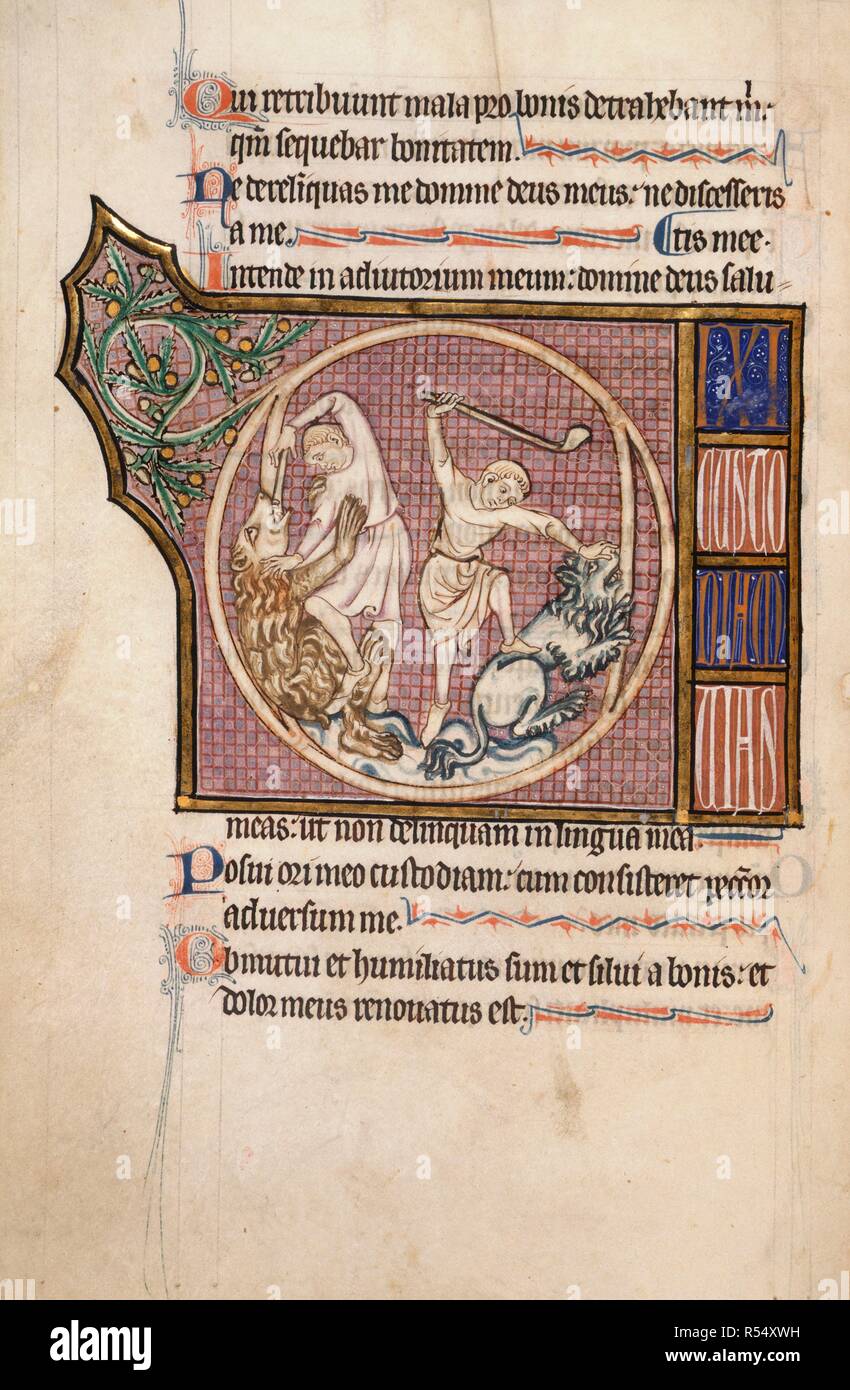 Qui retribuunt mala pro bonis detrahebant m̄:
qm̄ sequebar bonitatem.
Ne derelīquas me domine deus meus: ne discesseris
a me. Ctis mee.
Intende in adiutorium meum: domine deus salu=
D
IXI
CUSTO
DIAM
UIAS
meas: ut non delinquam in lingua mea.
Posui ori meo custodiam: cum consisteret pecc̄or
aduersum me.
Obmutui et humiliatus sum et silui a bonis: et
dolor meus renouatus est.
alamy
Image ID: R54XWH
www.alamy.com